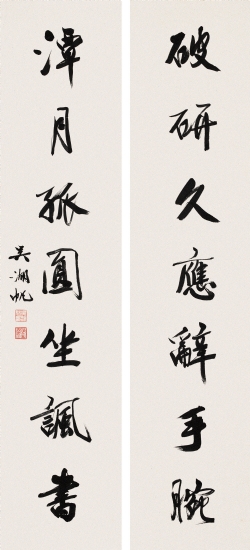 破研久應辭手腕
潭月孤圓坐諷書
吳湖帆